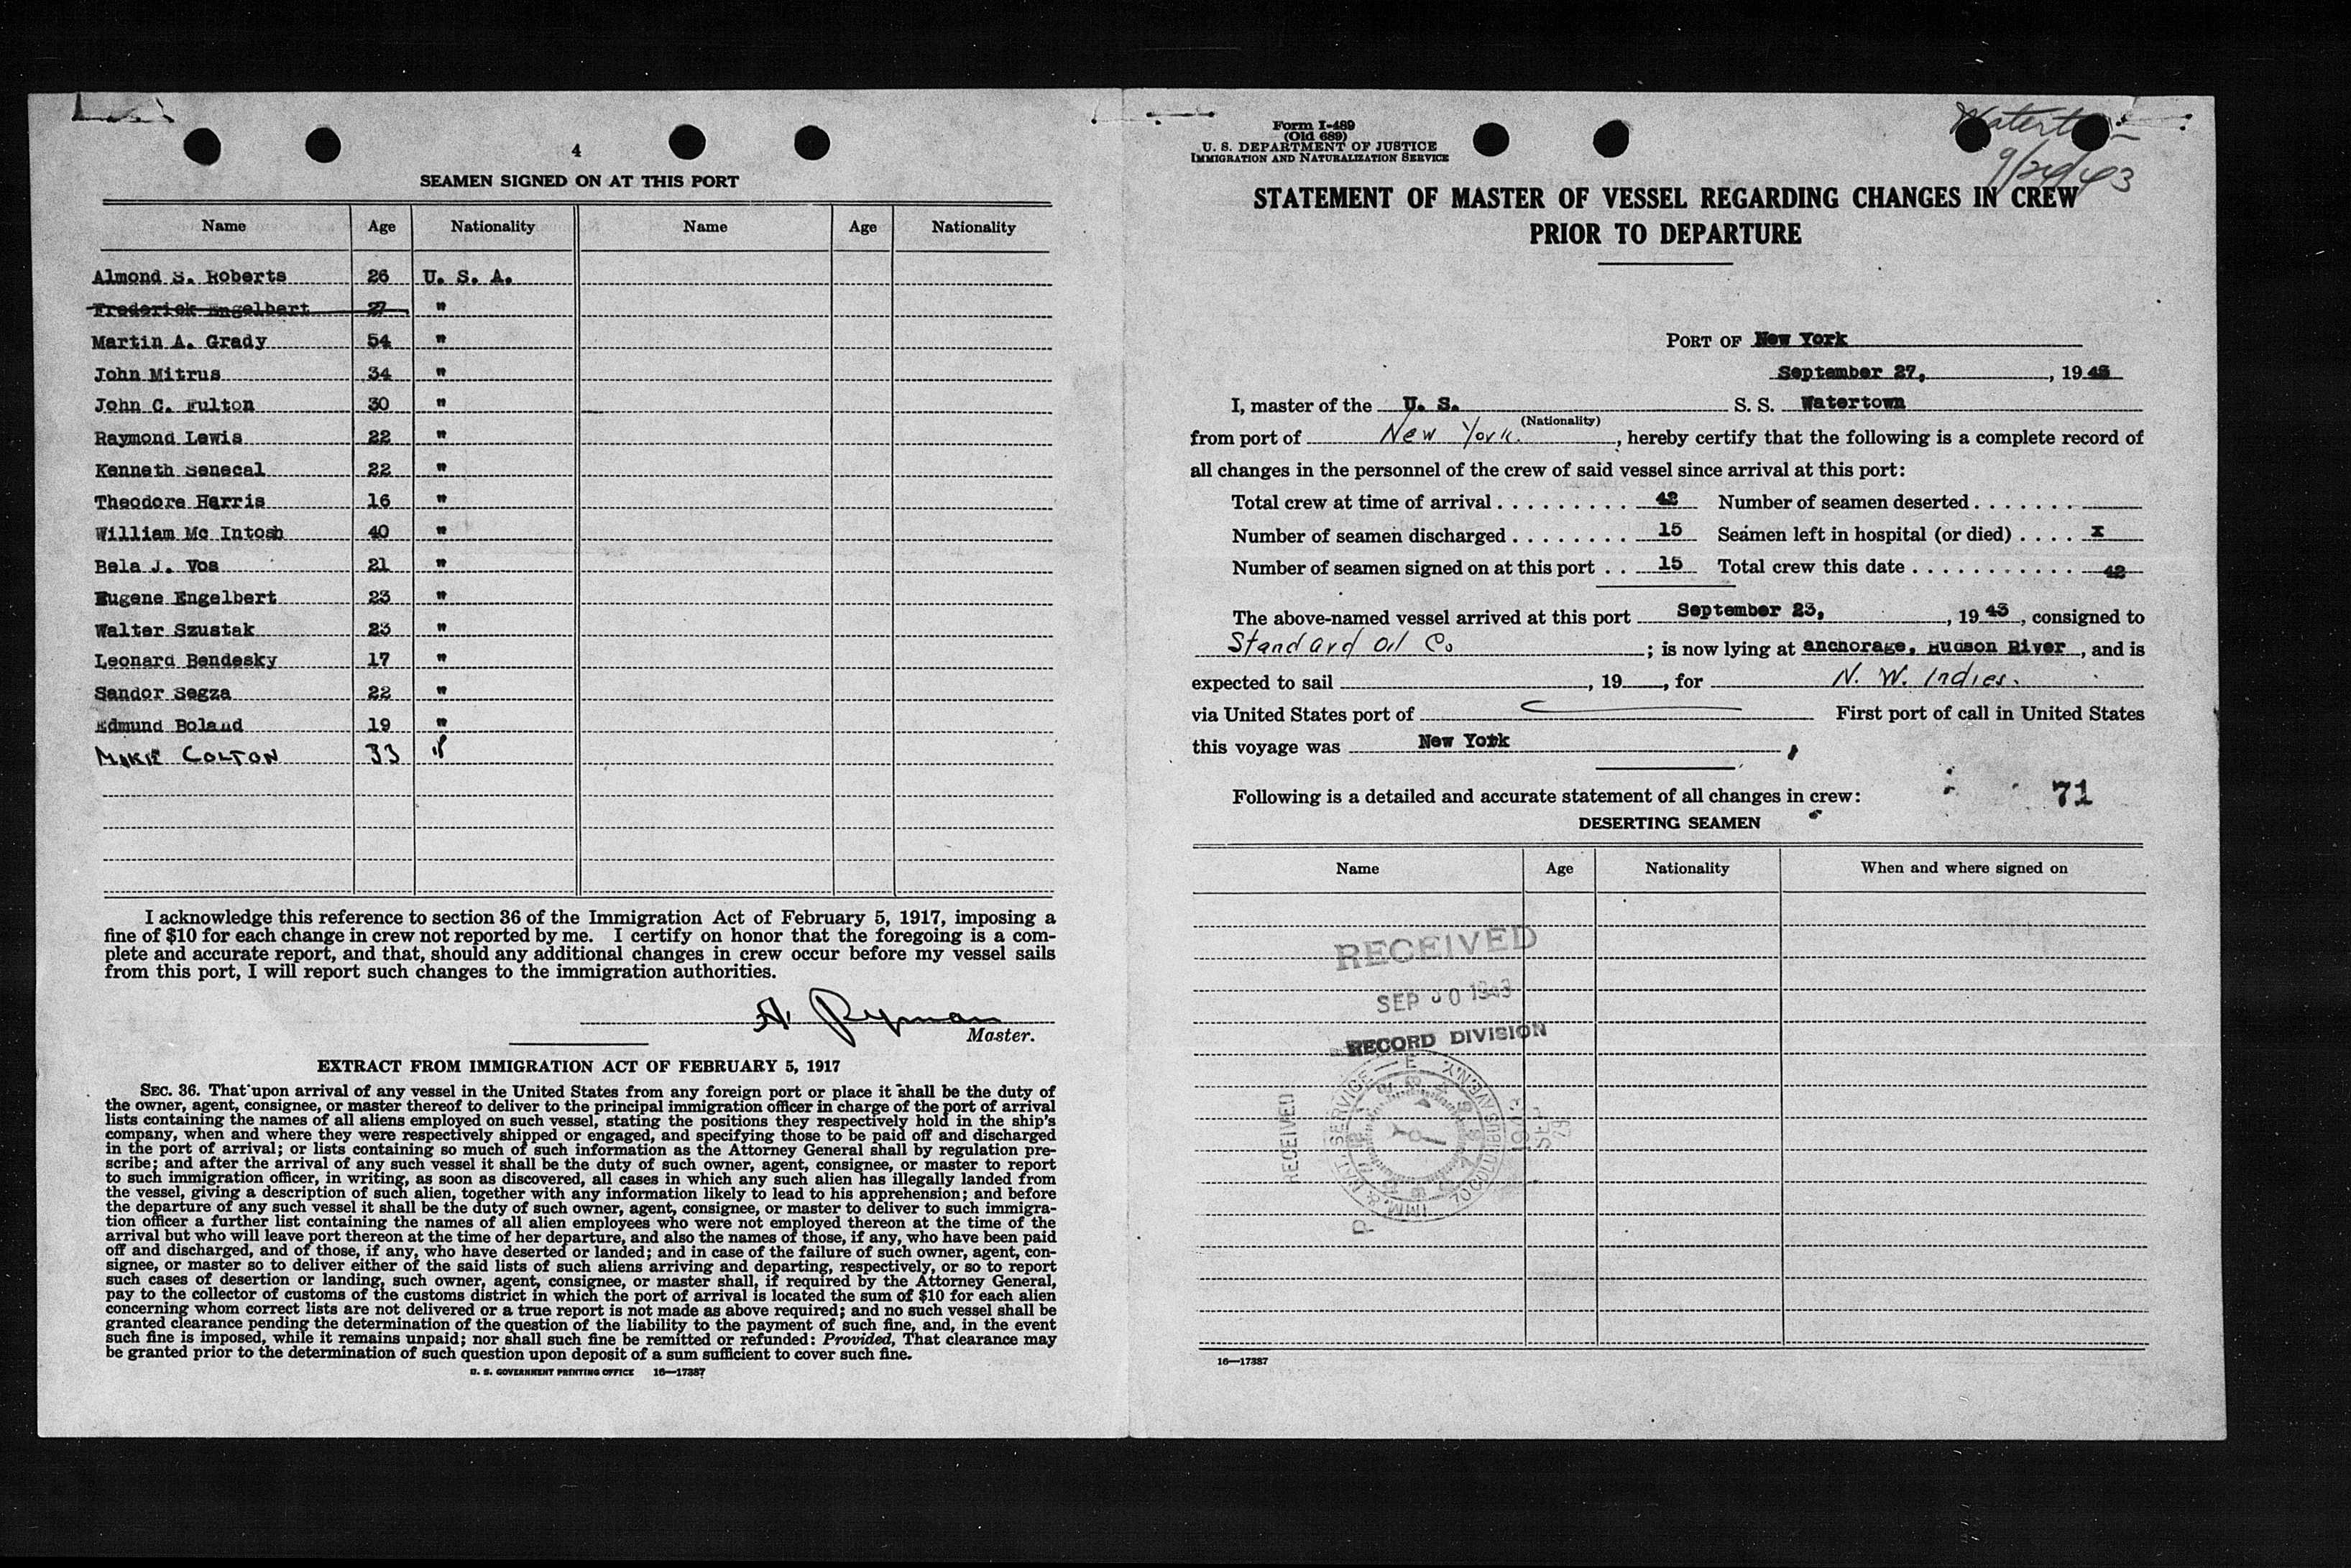 4
SEAMEN SIGNED ON AT THIS PORT
Name Age Nationality Name Age Nationality
Almond S. Roberts 26 U. S. A.
Frederick Engelbert 27 "
Martin A. Grady 54 "
John Mitrus 34 "
John C. Fulton 30 "
Raymond Lewis 22 "
Kenneth Senecal 22 "
Theodore Harris 16 "
William Mc Intosh 40 "
Bela J. Vos 21 "
Eugene Engelbert 23 "
Walter Szustak 23 "
Leonard Bendesky 17 "
Sandor Segza 22 "
Edmund Boland 19 "
MIKE COLTON 33 "
I acknowledge this reference to section 36 of the Immigration Act of February 5, 1917, imposing a
fine of $10 for each change in crew not reported by me. I certify on honor that the foregoing is a com-
plete and accurate report, and that, should any additional changes in crew occur before my vessel sails
from this port, I will report such changes to the immigration authorities.
A. Ryman
Master.
EXTRACT FROM IMMIGRATION ACT OF FEBRUARY 5, 1917
SEC. 36. That upon arrival of any vessel in the United States from any foreign port or place it shall be the duty of
the owner, agent, consignee, or master thereof to deliver to the principal immigration officer in charge of the port of arrival
lists containing the names of all aliens employed on such vessel, stating the positions they respectively hold in the ship's
company, when and where they were respectively shipped or engaged, and specifying those to be paid off and discharged
in the port of arrival; or lists containing so much of such information as the Attorney General shall by regulation pre-
scribe; and after the arrival of any such vessel it shall be the duty of such owner, agent, consignee, or master to report
to such immigration officer, in writing, as soon as discovered, all cases in which any such alien has illegally landed from
the vessel, giving a description of such alien, together with any information likely to lead to his apprehension; and before
the departure of any such vessel it shall be the duty of such owner, agent, consignee, or master to deliver to such immigra-
tion officer a further list containing the names of all alien employees who were not employed thereon at the time of the
arrival but who will leave port thereon at the time of her departure, and also the names of those, if any, who have been paid
off and discharged, and of those, if any, who have deserted or landed; and in case of the failure of such owner, agent, con-
signee, or master so to deliver either of the said lists of such aliens arriving and departing, respectively, or so to report
such cases of desertion or landing, such owner, agent, consignee, or master shall, if required by the Attorney General,
pay to the collector of customs of the customs district in which the port of arrival is located the sum of $10 for each alien
concerning whom correct lists are not delivered or a true report is not made as above required; and no such vessel shall be
granted clearance pending the determination of the question of the liability to the payment of such fine, and, in the event
such fine is imposed, while it remains unpaid; nor shall such fine be remitted or refunded: Provided, That clearance may
be granted prior to the determination of such question upon deposit of a sum sufficient to cover such fine.
U. S. GOVERNMENT PRINTING OFFICE 16—17387
Form I-489
(Old 689)
U. S. DEPARTMENT OF JUSTICE
IMMIGRATION AND NATURALIZATION SERVICE
STATEMENT OF MASTER OF VESSEL REGARDING CHANGES IN CREW
PRIOR TO DEPARTURE
PORT OF New York
September 27, , 19 43
I, master of the U. S. S. S. Watertown
(Nationality)
from port of New York. , hereby certify that the following is a complete record of
all changes in the personnel of the crew of said vessel since arrival at this port:
Total crew at time of arrival . . . . . . . . . 42 Number of seamen deserted . . . . . . .
Number of seamen discharged . . . . . . . . 15 Seamen left in hospital (or died) . . . . X
Number of seamen signed on at this port . . 15 Total crew this date . . . . . . . . . . . . 42
The above-named vessel arrived at this port September 23, , 19 43 , consigned to
Standard Oil Co ; is now lying at anchorage, Hudson River , and is
expected to sail , 19 , for N. W. Indies.
via United States port of First port of call in United States
this voyage was New York
Following is a detailed and accurate statement of all changes in crew: 71
DESERTING SEAMEN
Name Age Nationality When and where signed on
RECEIVED
SEP 1943
RECORD DIVISION
RECEIVED
IMM. & NAT. SERVICE
70 COLUMBUS AVE. N.Y.
16—17387